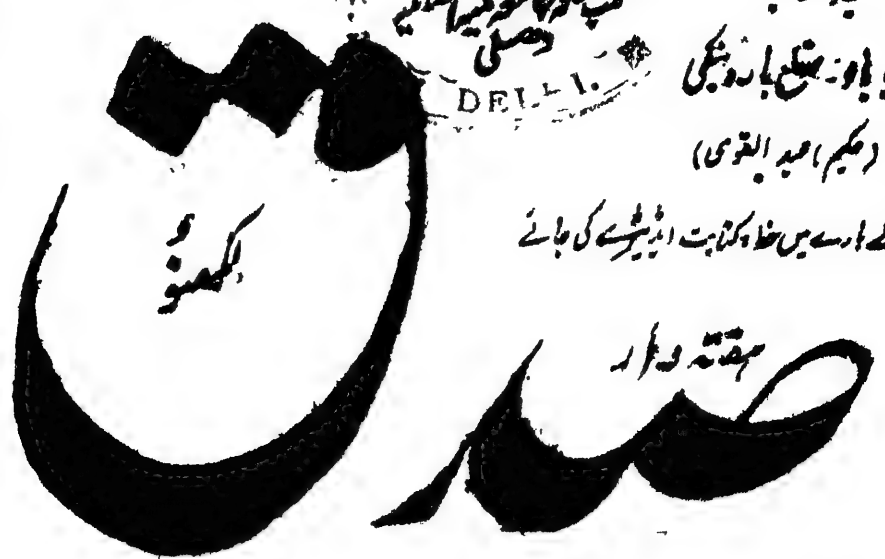 دہلی
DELHI.
باد۔ ضلع بارہ بنکی
(حکیم) عبد القوی)
بارے میں خط و کتابت ایڈیٹر سے کی جائے
ہفتہ وار
صدق
لکھنؤ